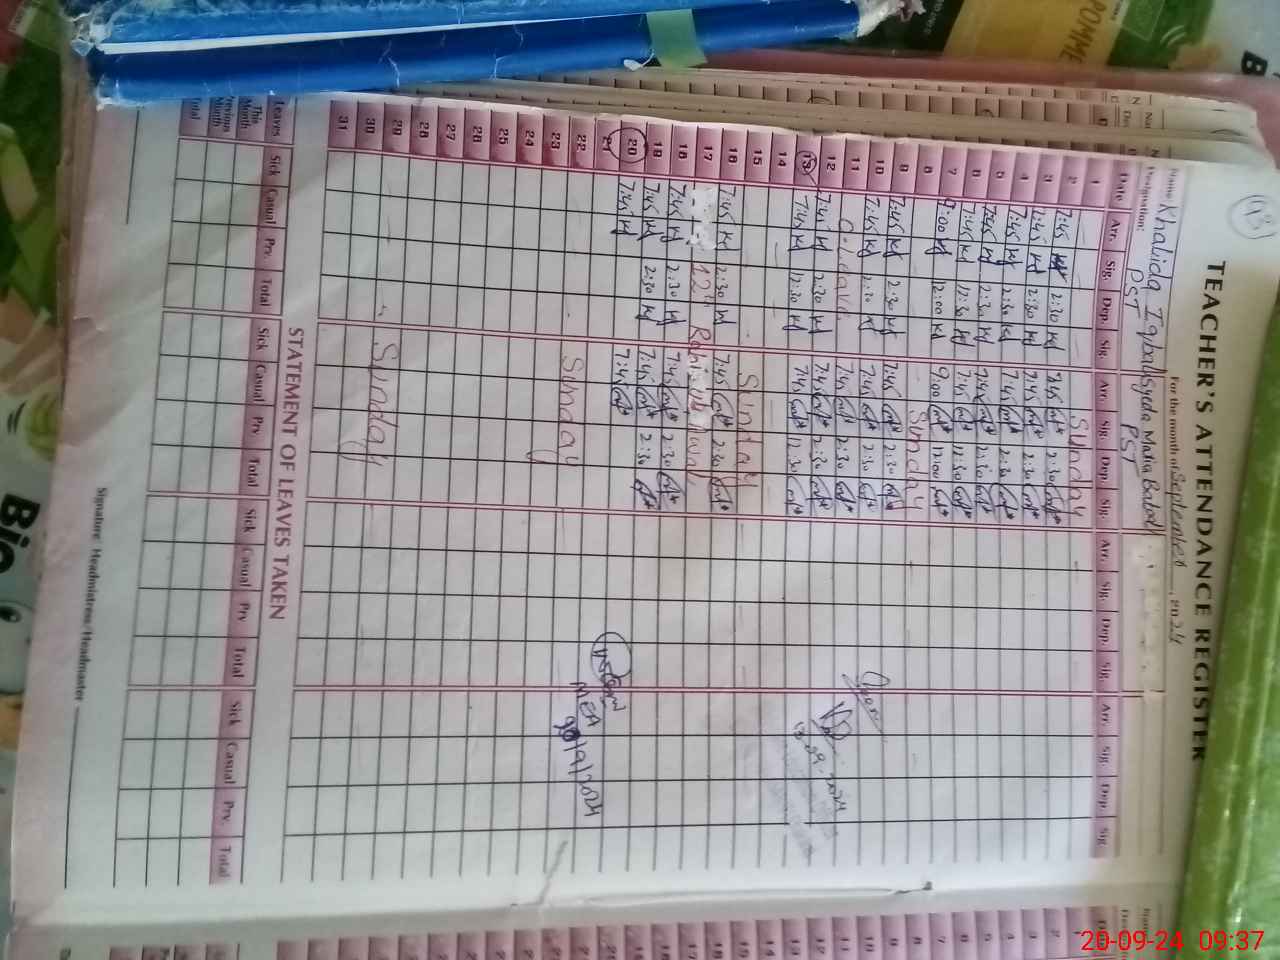 93
TEACHER'S ATTENDANCE REGISTER
For the month of September, 2024
Name Khalida Iqbal Syeda Maria Batool
Designation: PST PST
Date Arr. Sig. Dep. Sig. Arr. Sig. Dep. Sig. Arr. Sig. Dep. Sig. Arr. Sig. Dep. Sig
1 Sunday
2 7:45 kf 2:30 kf 7:45 2:30
3 7:45 kf 2:30 kf 7:45 2:30
4 7:45 kf 2:30 kf 7:45 2:30
5 7:45 kf 2:30 kf 7:45 2:30
6 7:45 kf 12:30 kf 7:45 12:30
7 9:00 kf 12:00 kf 9:00 12:00
8 Sunday
9 7:45 kf 2:30 kf 7:45 2:30
10 7:45 kf 2:30 kf 7:45 2:30
11 C. Leave 7:45 2:30
12 7:45 kf 2:30 kf 7:45 2:30
13 7:45 kf 12:30 kf 7:45 12:30
14
13-09-2024
15 Sunday
16 7:45 kf 2:30 kf 7:45 2:30
17 12th Rabi ul Awal
18 7:45 kf 2:30 kf 7:45 2:30
19 7:45 kf 2:30 kf 7:45 2:30
20 7:45 kf 7:45
21
MEA
22 Sunday
20/9/2024
23
24
25
26
27
28
29 Sunday
30
31
STATEMENT OF LEAVES TAKEN
Leaves Sick Casual Prv. Total Sick Casual Prv Total Sick Casual Prv Total Sick Casual Prv. Total
This Month
Previous Month
Total
Signature Headmistress/Headmaster
POMME
Bio
20-09-24 09:37